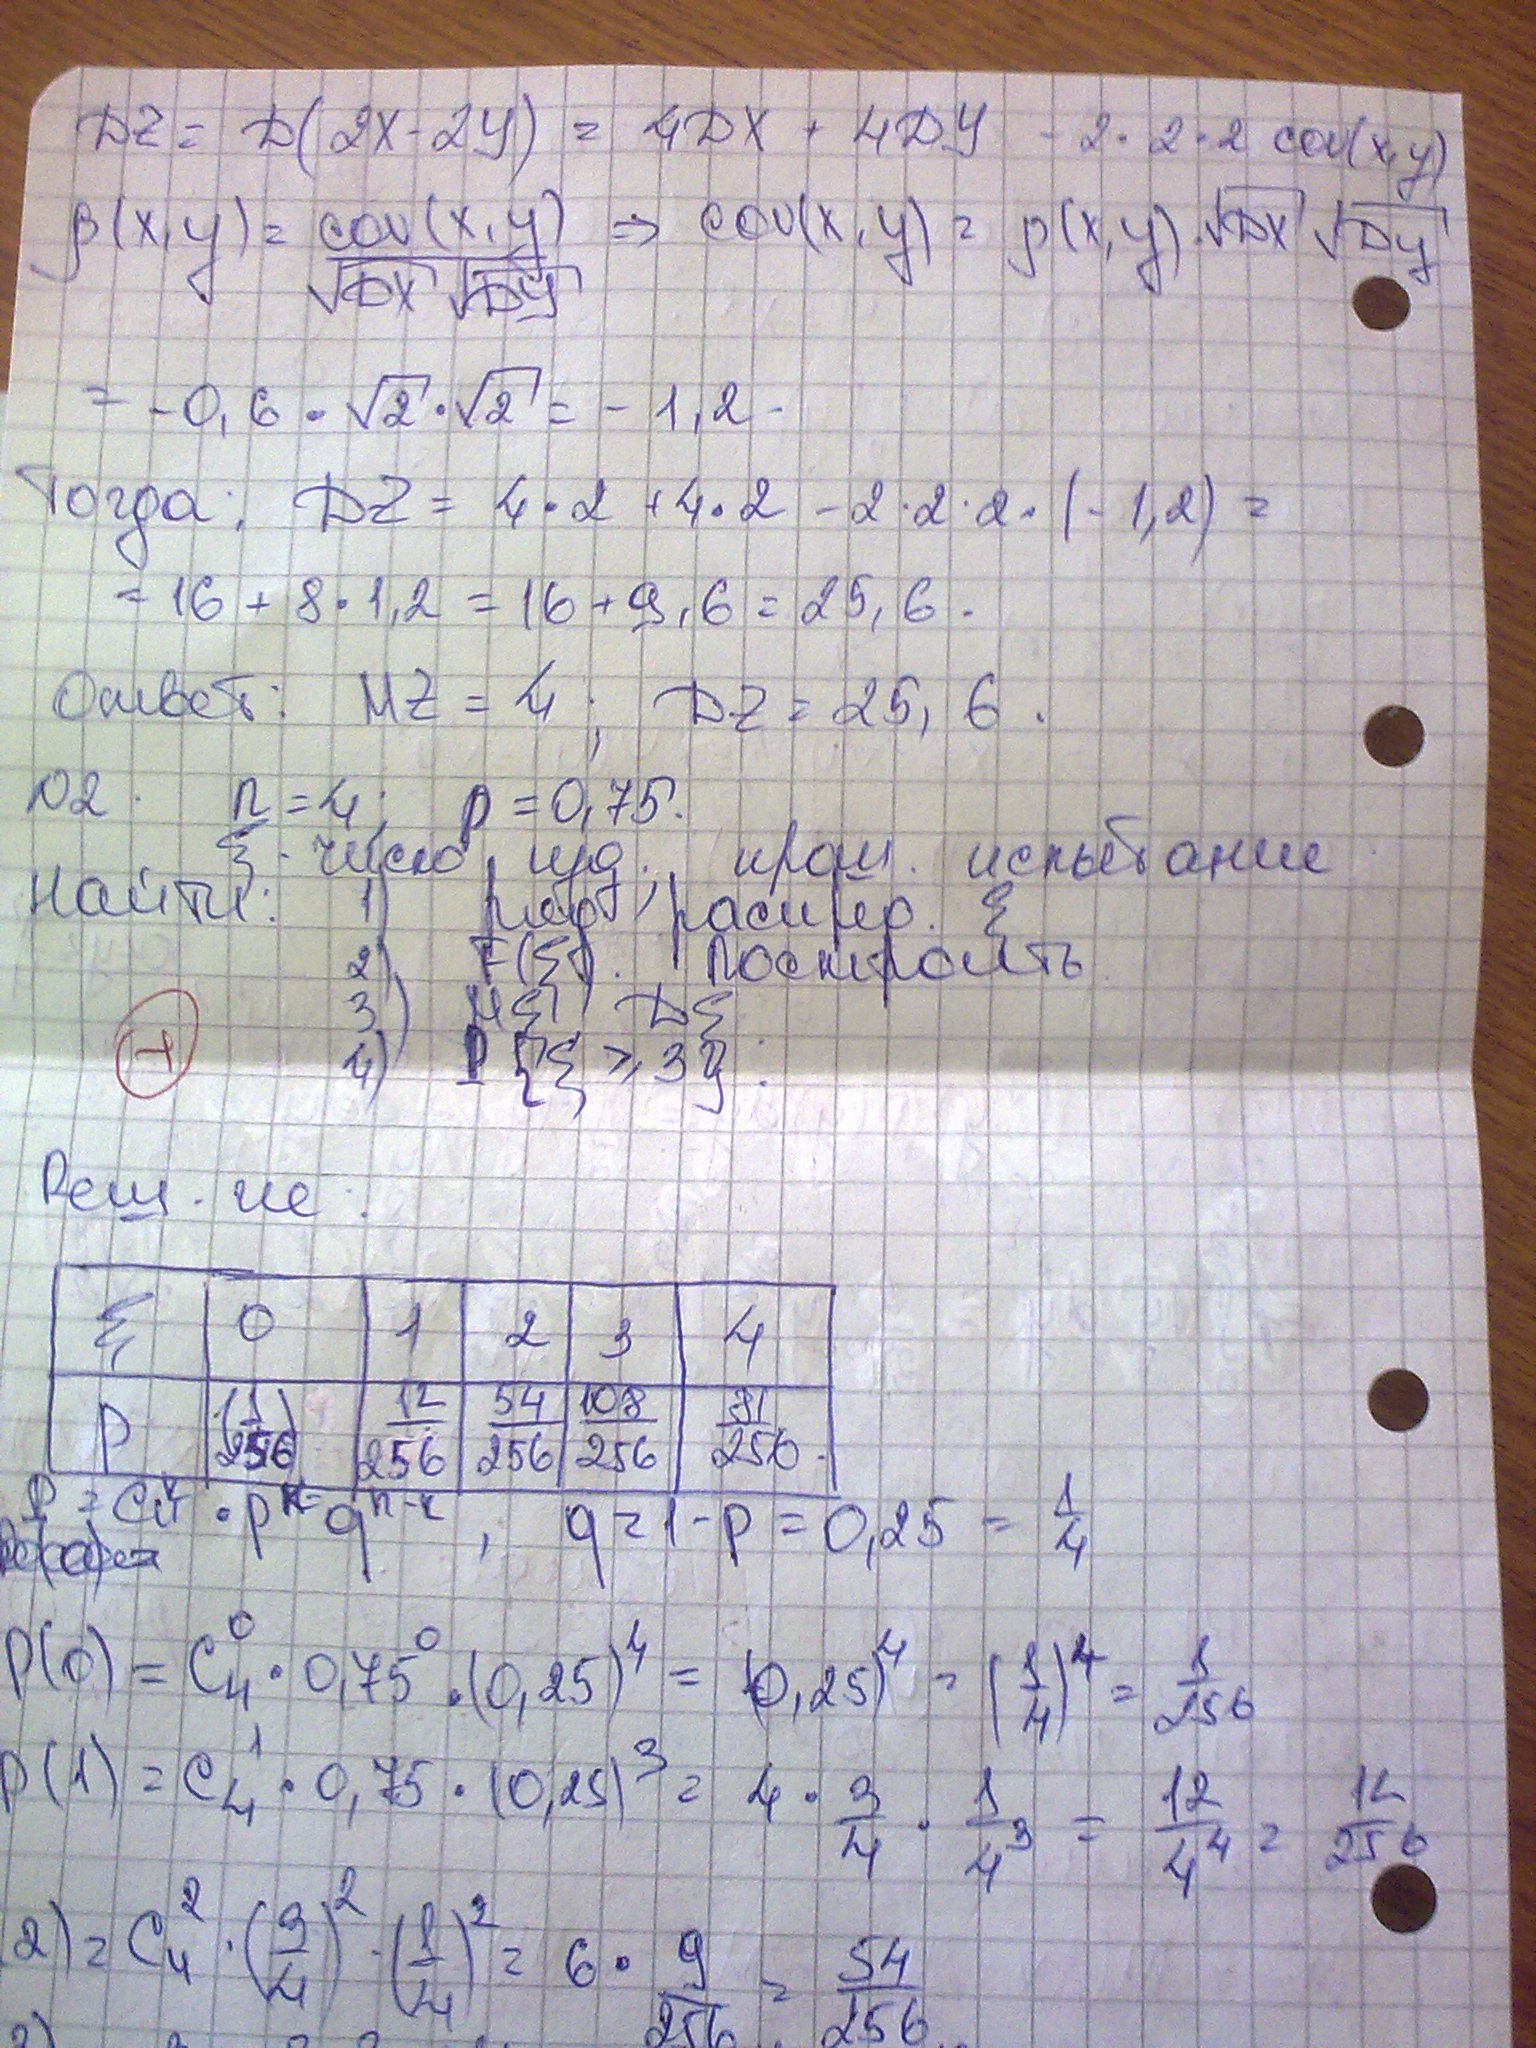 DZ = D(2X-2Y) = 4DX + 4DY - 2·2·2 cov(x,y)
ρ(x,y) = cov(x,y) / √DX √DY ⇒ cov(x,y) = ρ(x,y)·√DX √Dy
= -0,6·√2·√2 = -1,2.
Тогда: DZ = 4·2 + 4·2 - 2·2·2·(-1,2) =
= 16 + 8·1,2 = 16 + 9,6 = 25,6.
Ответ: MZ = 4; DZ = 25,6.
№2. n = 4; p = 0,75.
ξ - число изд., прош. испытание
Найти: 1) ряд распред. ξ
2) F(ξ). Построить
3) Mξ, Dξ
4) P{ξ ≥ 3}.
Реш-ие:
ξ 0 1 2 3 4
P (1/256) 12/256 54/256 108/256 81/256.
P = C₄ᵏ · pᵏ qⁿ⁻ᵏ, q = 1-p = 0,25 = 1/4
P(0) = C₄⁰ · 0,75⁰ · (0,25)⁴ = (0,25)⁴ = (1/4)⁴ = 1/256
P(1) = C₄¹ · 0,75 · (0,25)³ = 4 · 3/4 · 1/4³ = 12/4⁴ = 12/256
2) = C₄² · (3/4)² · (1/4)² = 6 · 9/256 = 54/256